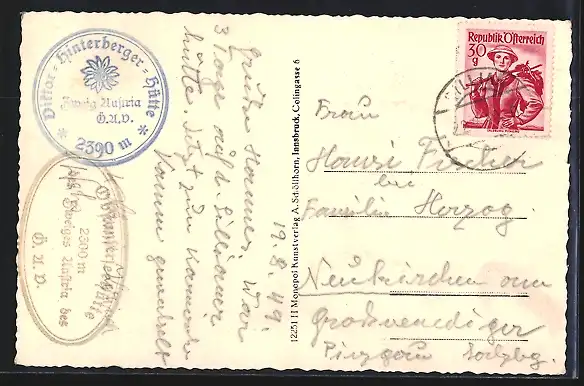 Viktor-Hinterberger-Hütte
Zweig Austria
Ö.A.V.
* 2390 m *
2300 m
des Zweiges Austria des
Ö.A.V.
19. 8. 49.
3 Tage auf d. Sillianer
hütte. Jetzt zum Karnische
Kamm
12251 H Monopol Kunstverlag A. Schöllhorn, Innsbruck, Colingasse 6
Republik Österreich
30
g
Frau
Hansi Fischer
bei
Familie Herzog
Neukirchen am
Großvenediger
Pinzgau Salzbg.